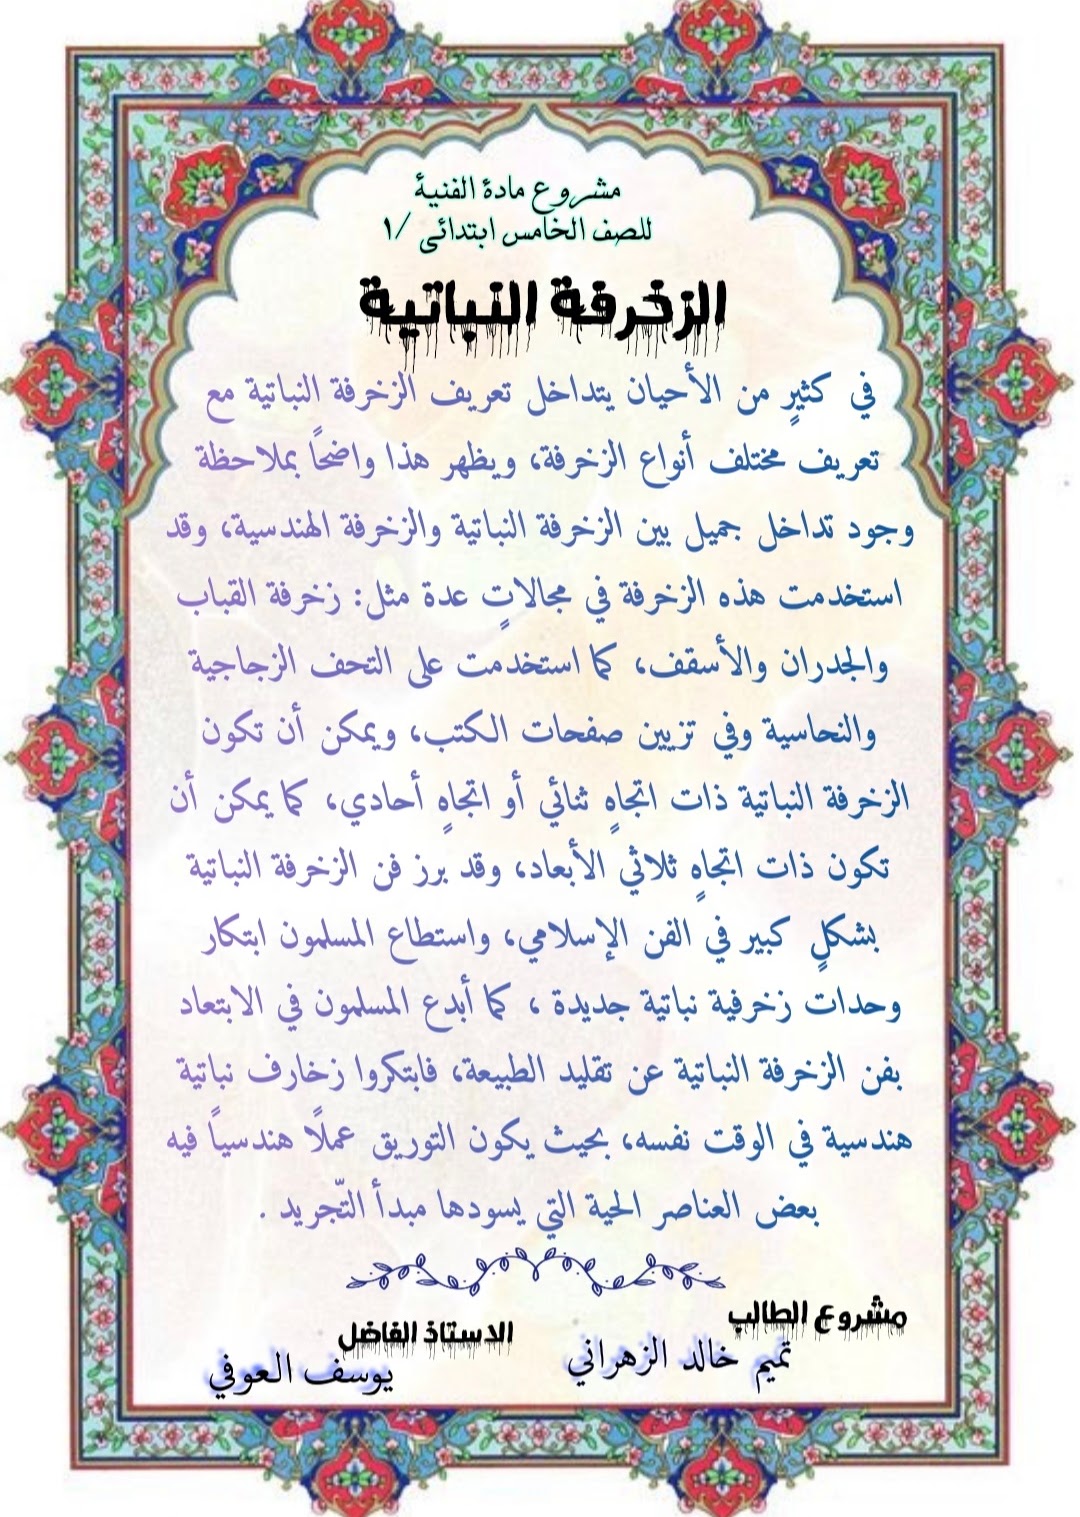 مشروع مادة الفنية
للصف الخامس ابتدائى /١
الزخرفة النباتية
في كثيرٍ من الأحيان يتداخل تعريف الزخرفة النباتية مع
تعريف مختلف أنواع الزخرفة، ويظهر هذا واضحًا بملاحظة
وجود تداخل جميل بين الزخرفة النباتية والزخرفة الهندسية، وقد
استخدمت هذه الزخرفة في مجالاتٍ عدة مثل: زخرفة القباب
والجدران والأسقف، كما استخدمت على التحف الزجاجية
والنحاسية وفي تزيين صفحات الكتب، ويمكن أن تكون
الزخرفة النباتية ذات اتجاهٍ ثنائي أو اتجاهٍ أحادي، كما يمكن أن
تكون ذات اتجاهٍ ثلاثي الأبعاد، وقد برز فن الزخرفة النباتية
بشكلٍ كبير في الفن الإسلامي، واستطاع المسلمون ابتكار
وحدات زخرفية نباتية جديدة ، كما أبدع المسلمون في الابتعاد
بفن الزخرفة النباتية عن تقليد الطبيعة، فابتكروا زخارف نباتية
هندسية في الوقت نفسه، بحيث يكون التوريق عملًا هندسياً فيه
بعض العناصر الحية التي يسودها مبدأ التّجريد .
مشروع الطالب
تميم خالد الزهراني
الاستاذ الفاضل
يوسف العوفي